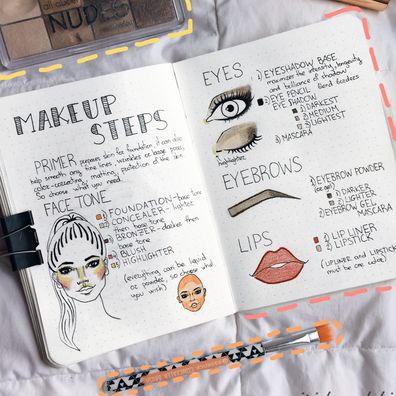 all over
NUDES
MAKEUP
STEPS
PRIMER prepares skin for foundation, it can also
help smooth any fine lines, wrinkles or large pores,
color-correcting, matting, protection of the skin.
So choose what you need.
FACE TONE
1) FOUNDATION-base tone
2) CONCEALER-lighter
than base tone
3) BRONZER-darker then
base tone
4) BLUSH
5) HIGHLIGHTER
(everything can be liquid
or powder, so choose what
you wish)
EYES
1) EYESHADOW BASE
maximizes the intensity, longevity,
and brilliance of shadow
2) EYE PENCIL
EYE SHADOW
blend borders
1) DARKEST
2) MEDIUM
3) LIGHTEST
3) MASCARA
highlighter
EYEBROWS
1) EYEBROW POWDER
(or gel)
1) DARKER
2) LIGHTER
2) EYEBROW GEL
MASCARA
LIPS
1) LIP LINER
2) LIPSTICK
(LIPLINER and LIPSTICK
must be one color)